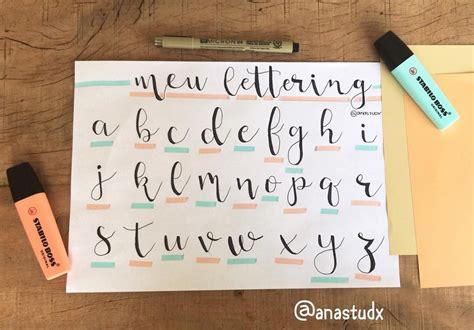 MICRON
meu lettering
@anastudx
a b c d e f g h i
j k l m n o p q r
s t u v w x y z
STABILO BOSS
ORIGINAL
STABILO BOSS
ORIGINAL
@anastudx